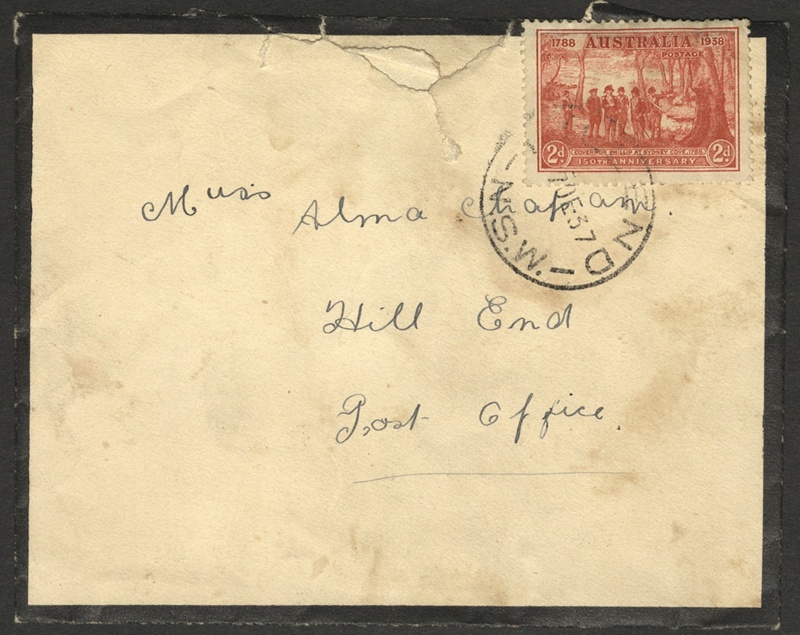 1788 AUSTRALIA 1938
POSTAGE
2d GOVERNOR PHILLIP AT SYDNEY COVE, 1788. 2d
150TH ANNIVERSARY
END - N.S.W. -
DE 37
Miss Alma
Hill End
Post Office.